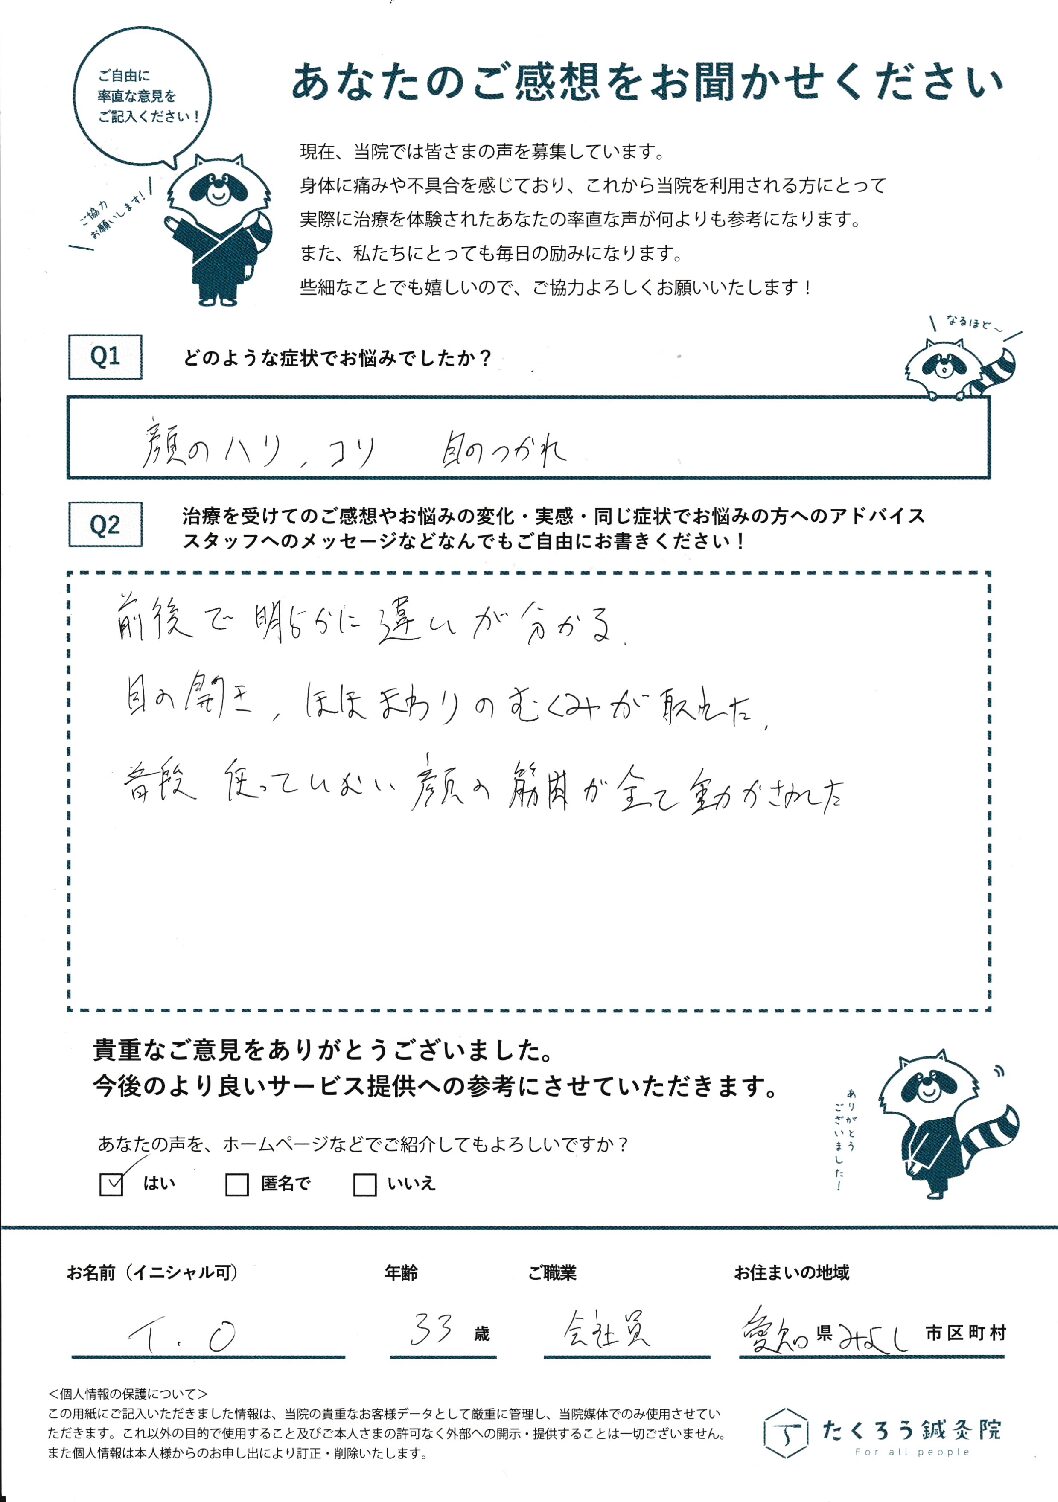 ご自由に
率直な意見を
ご記入ください！
あなたのご感想をお聞かせください
ご協力
お願いします！
現在、当院では皆さまの声を募集しています。
身体に痛みや不具合を感じており、これから当院を利用される方にとって
実際に治療を体験されたあなたの率直な声が何よりも参考になります。
また、私たちにとっても毎日の励みになります。
些細なことでも嬉しいので、ご協力よろしくお願いいたします！
なるほど〜
Q1 どのような症状でお悩みでしたか？
顔のハリ、コリ 目のつかれ
Q2 治療を受けてのご感想やお悩みの変化・実感・同じ症状でお悩みの方へのアドバイス
スタッフへのメッセージなどなんでもご自由にお書きください！
前後で明らかに違いが分かる。
目の開き、ほほまわりのむくみが取れた。
普段使っていない顔の筋肉が全て動かされた
貴重なご意見をありがとうございました。
今後のより良いサービス提供への参考にさせていただきます。
ありがとう
ございました！
あなたの声を、ホームページなどでご紹介してもよろしいですか？
はい 匿名で いいえ
お名前（イニシャル可） 年齢 ご職業 お住まいの地域
T.O 33 歳 会社員 愛知 県 みよし 市区町村
＜個人情報の保護について＞
この用紙にご記入いただきました情報は、当院の貴重なお客様データとして厳重に管理し、当院媒体でのみ使用させてい
ただきます。これ以外の目的で使用すること及びご本人さまの許可なく外部への開示・提供することは一切ございません。
また個人情報は本人様からのお申し出により訂正・削除いたします。
たくろう鍼灸院
For all people